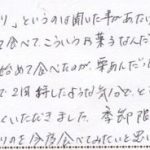 り」というのは聞いた事があたい
て食べて、こういうお菓子なんだ
始めて食べたのが、栗あんだっ
で2個得したような気るで、と
くいただきました。季節限
りのを今度食べてみたいと思い